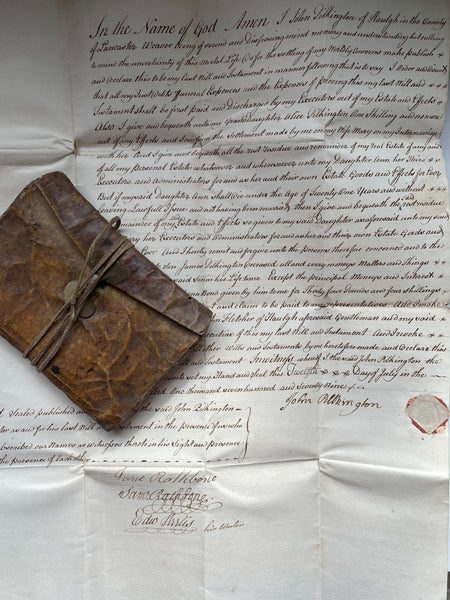 In the Name of God Amen I John Pilkington of Haulgh in the County
of Lancaster Weaver being of sound and disposing mind memory and understanding but calling
to mind the uncertainty of this mortal Life do for the settling of my Worldly Concerns make publish
and declare this to be my last Will and Testament in manner following that is to say I order and direct
that all my Just Debts Funeral Expences and the Expences of proving this my last Will and
Testament shall be first paid and discharged by my Executors out of my Estate and Effects
Also I give and bequeath unto my Grand Daughter Alice Pilkington One Shilling and no more
out of my Effects and the Settlement made by me on my Wife Mary on my Intermarriage
with her And I give and bequeath all the rest residue and remainder of my real Estate if any and
of all my Personal Estate whatsoever and wheresoever unto my Daughter Ann her Heirs
Executors and Administrators for and as her and their own Estate Goods and Effects for Ever
But if my said Daughter Ann shall die under the Age of Twenty One Years and without
leaving Lawful Issue and not having been married then I give and bequeath the rest residue
remainder of my Estate and Effects so given to my said Daughter as aforesaid unto my said
her Executors and Administrators for and as her and their own Estate Goods and
Ever And I hereby remit and forgive unto the persons therein concerned and to the
Son James Pilkington Deceased all and every moneys Matters and Things
said Son in his Life time Except the principal Moneys and Interest
given by him to me for Thirty four Pounds and four Shillings
and claim to be paid to my representatives And I make
Fletcher of Haulgh aforesaid Gentleman and my said
of this my last Will and Testament And I revoke
other Wills and Testaments by me heretofore made and Declare this
and Testament In witness whereof I the said John Pilkington the
set my Hand and Seal this Twelfth Day of July in the
Lord One thousand seven hundred and Seventy nine
John Pilkington
Sealed published and the said John Pilkington
as and for his last Will and Testament in the presence of us who
subscribed our Names as Witnesses thereto in his Sight and presence
the presence of Each other
Jane Rathbone
Saml Rathbone
Edw